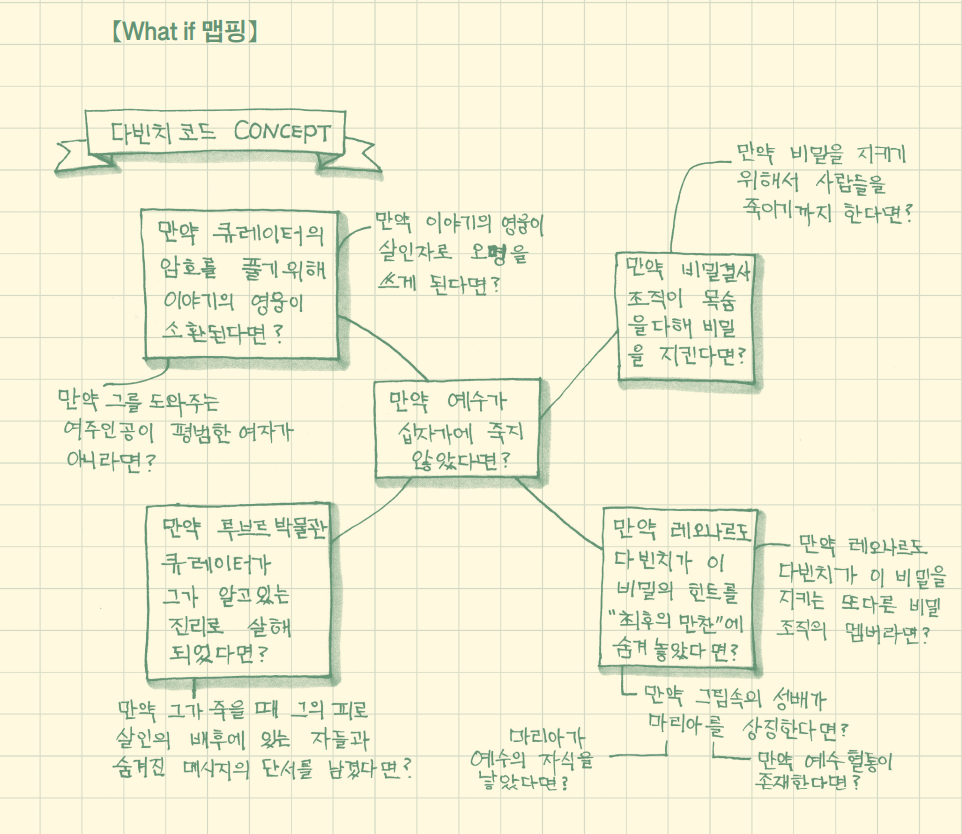 【What if 맵핑】
다빈치 코드 CONCEPT
만약 큐레이터의
암호를 풀기 위해
이야기의 영웅이
소환된다면?
만약 이야기의 영웅이
살인자로 오명을
쓰게 된다면?
만약 그를 도와주는
여주인공이 평범한 여자가
아니라면?
만약 비밀을 지키기
위해서 사람들을
죽이기까지 한다면?
만약 비밀결사
조직이 목숨
을 다해 비밀
을 지킨다면?
만약 예수가
십자가에 죽지
않았다면?
만약 루브르 박물관
큐레이터가
그가 알고있는
진리로 살해
되었다면?
만약 그가 죽을 때 그의 피로
살인의 배후에 있는 자들과
숨겨진 메시지의 단서를 남겼다면?
만약 레오나르도
다빈치가 이
비밀의 힌트를
"최후의 만찬"에
숨겨 놓았다면?
만약 레오나르도
다빈치가 이 비밀을
지키는 또다른 비밀
조직의 멤버라면?
만약 그림속의 성배가
마리아를 상징한다면?
마리아가
예수의 자식을
낳았다면?
만약 예수 혈통이
존재한다면?